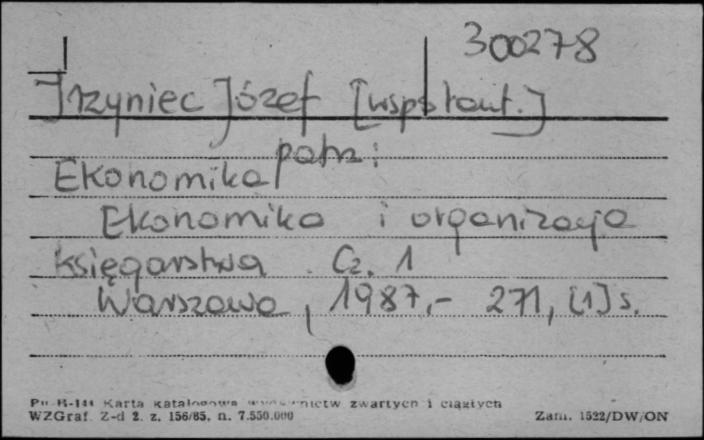 300278
Jrzyniec Józef [współaut.]
patrz:
Ekonomika
Ekonomika i organizacja
księgarstwa. Cz. 1
Warszawa, 1987.- 271, [1] s.
Pu-B-144 Karta katalogowa wydawnictw zwartych i ciągłych
WZGraf. Z-d 2. z. 156/85. n. 7.550.000
Zam. 1522/DW/ON